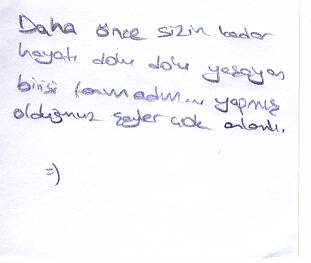 Daha önce sizin kadar
hayatı dolu dolu yaşayan
birisi tanımadım... yapmış
olduğunuz şeyler çok anlamlı.
=)